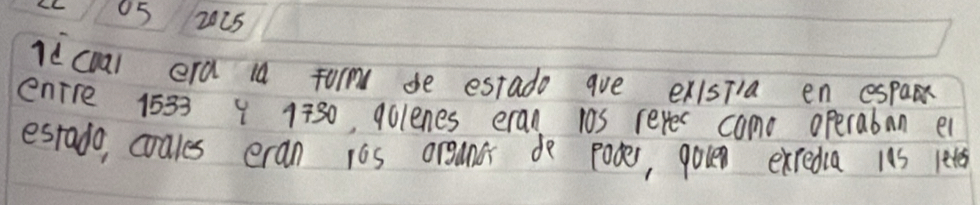 22 05 2025
1¿cual era la forma de estado que existia en españa
entre 1533 y 1730, quienes eran los reyes como operaban el
estado, cuales eran los organos de poder, quien expedia las leyes